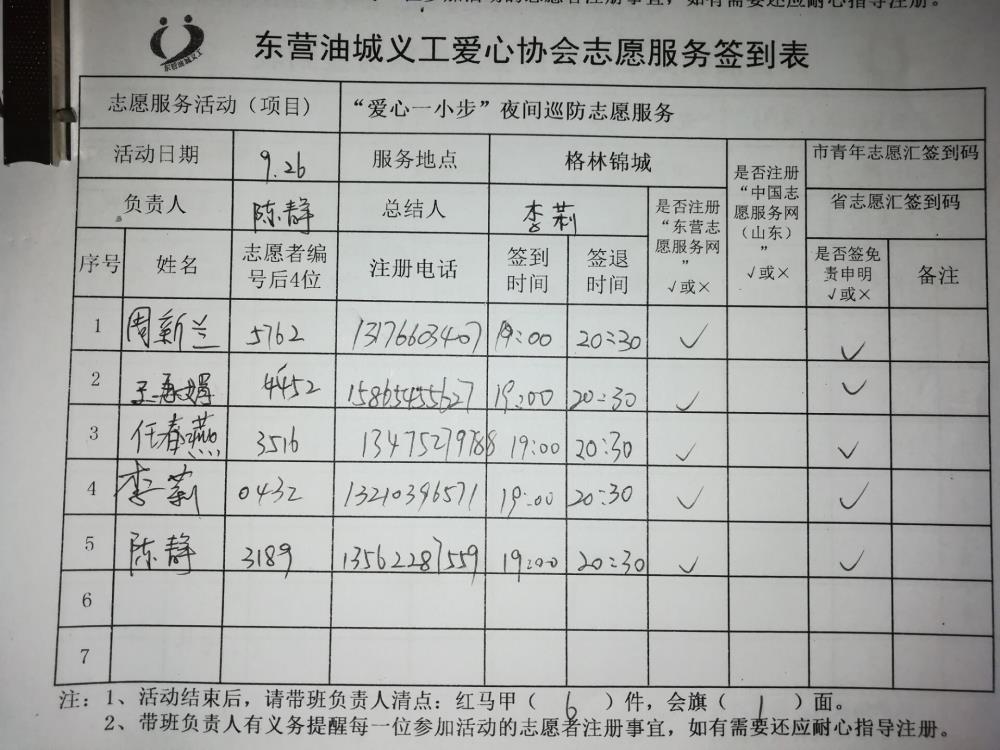 东营油城义工
东营油城义工爱心协会志愿服务签到表
志愿服务活动（项目） “爱心一小步”夜间巡防志愿服务
活动日期 9.26 服务地点 格林锦城 是否注册“中国志愿服务网（山东）” √或× 市青年志愿汇签到码
负责人 陈静 总结人 李莉 是否注册“东营志愿服务网” √或× 省志愿汇签到码
序号 姓名 志愿者编号后4位 注册电话 签到时间 签退时间 是否签免责申明 √或× 备注
1 周新兰 5762 13176603407 19:00 20:30 ✓ ✓
2 王再娟 4452 15865455627 19:00 20:30 ✓ ✓
3 任春燕 3516 13475279788 19:00 20:30 ✓ ✓
4 李莉 0432 13210396571 19:00 20:30 ✓ ✓
5 陈静 3189 13562287559 19:00 20:30 ✓ ✓
6
7
注：1、活动结束后，请带班负责人清点：红马甲（ 6 ）件，会旗（ 1 ）面。
2、带班负责人有义务提醒每一位参加活动的志愿者注册事宜，如有需要还应耐心指导注册。